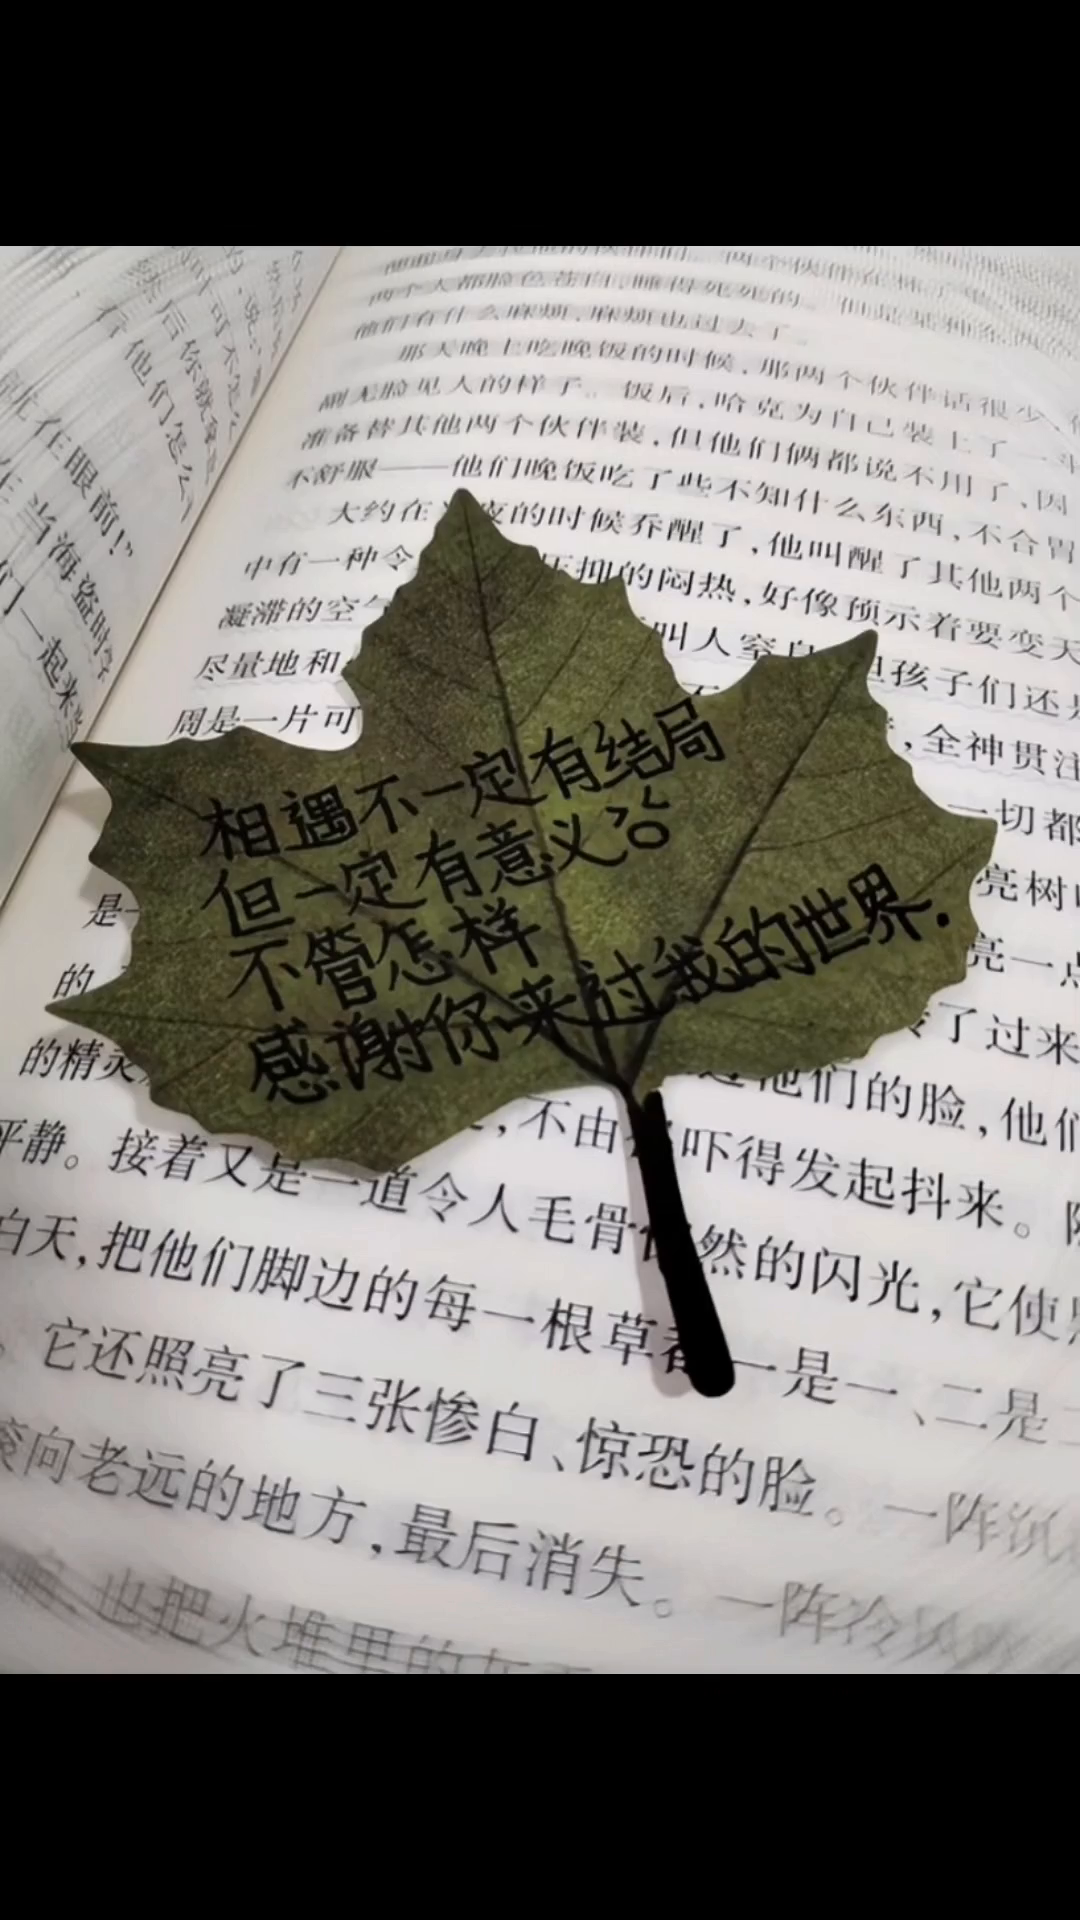 眼前！”
当海盗时
们一起来
后他们怎么
两个人都脸色苍白，睡得死死的。
他们有什么麻烦，麻烦也过去了。
那天晚上吃晚饭的时候，那两个伙伴话很少，
副无脸见人的样子。饭后，哈克为自己装上了一斗
准备替其他两个伙伴装，但他们俩都说不用了，因
不舒服——他们晚饭吃了些不知什么东西，不合胃
大约在 夜的时候乔醒了，他叫醒了其他两个
中有一种令 压抑的闷热，好像预示着要变天
凝滞的空气 叫人窒息 但孩子们还是
尽量地和
周是一片可 ，全神贯注
一切都
相遇不一定有结局
但一定有意义
不管怎样
感谢你来过我的世界.
是一 亮树
的 亮一点
的精灵 了过来
他们的脸，他们
平静。接着又是一道令人毛骨 然的闪光，它使
，不由 吓得发起抖来。
白天，把他们脚边的每一根草都一是一、二是二
。它还照亮了三张惨白、惊恐的脸。一阵沉
滚向老远的地方，最后消失。一阵冷风
也把火堆里的